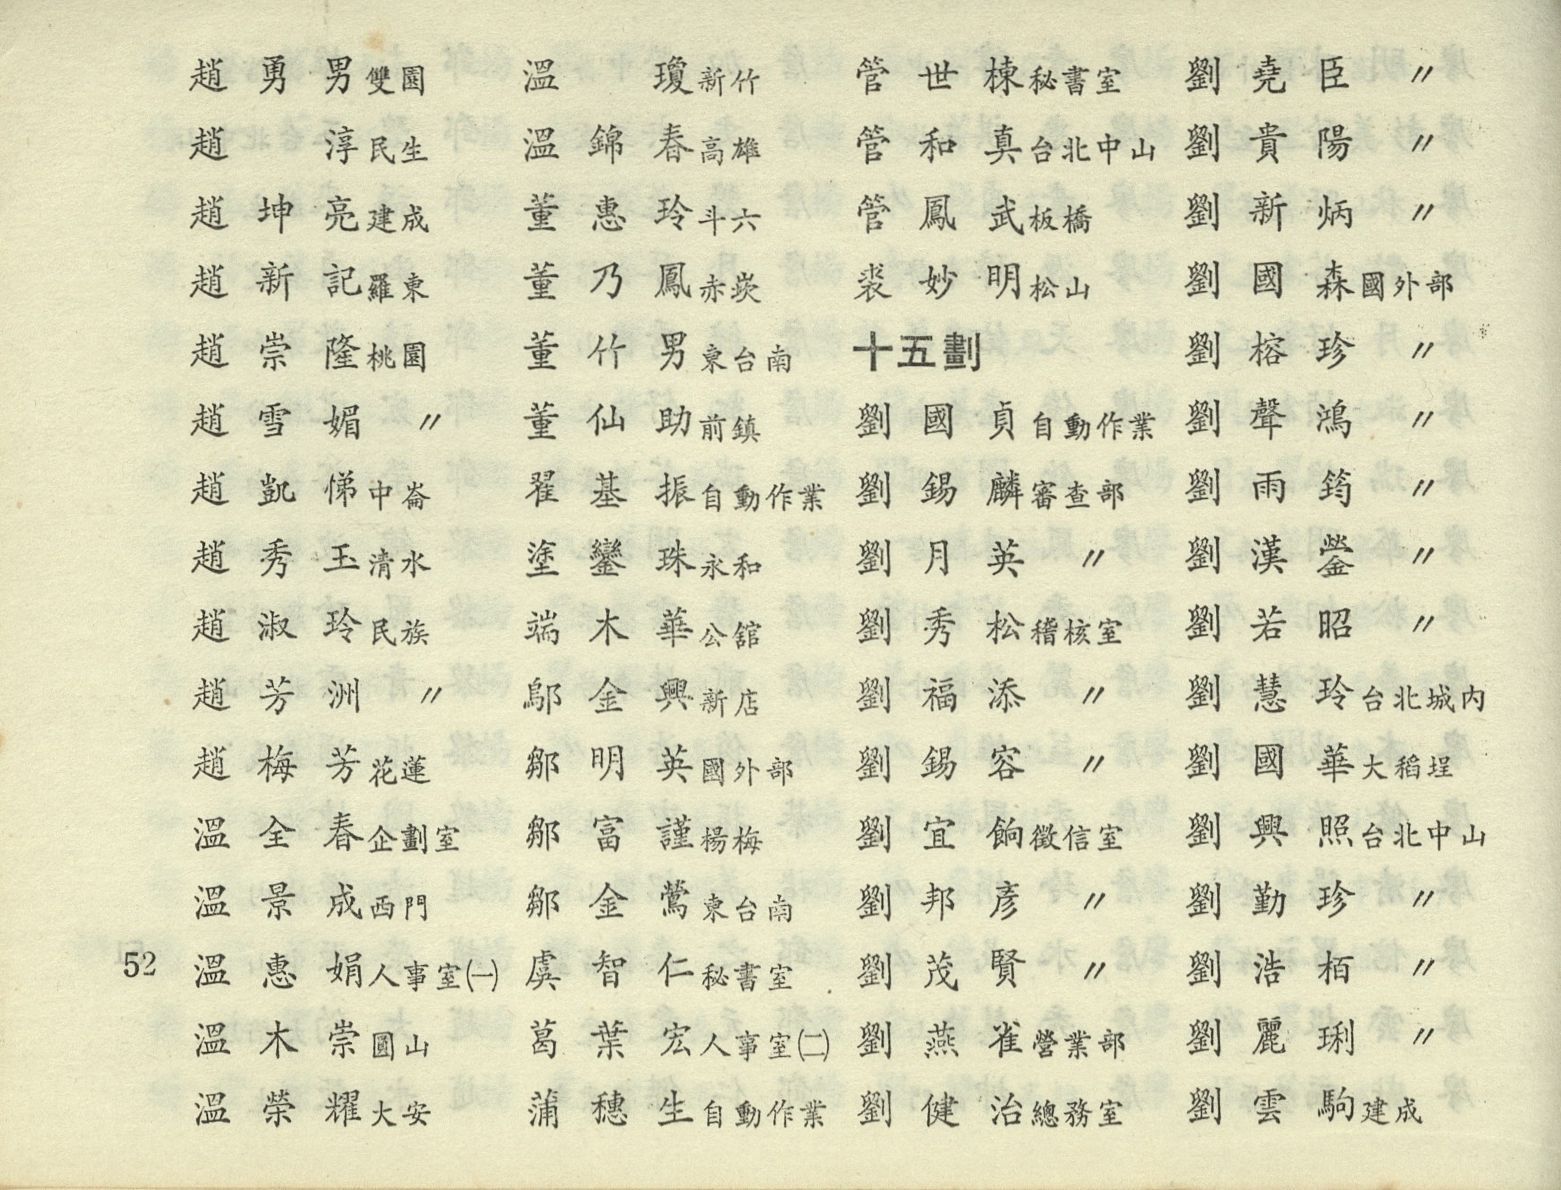 趙勇男雙園
趙淳民生
趙坤亮建成
趙新記羅東
趙崇隆桃園
趙雪媚〃
趙凱悌中崙
趙秀玉清水
趙淑玲民族
趙芳洲〃
趙梅芳花蓮
溫全春企劃室
溫景成西門
溫惠娟人事室㈠
溫木崇圓山
溫榮耀大安
溫瓊新竹
溫錦春高雄
董惠玲斗六
董乃鳳赤崁
董竹男東台南
董仙助前鎮
翟基振自動作業
塗鑾珠永和
端木華公舘
鄔金興新店
鄒明英國外部
鄒富謹楊梅
鄒金鶯東台南
虞智仁秘書室
葛葉宏人事室㈡
蒲穗生自動作業
管世棟秘書室
管和真台北中山
管鳳武板橋
裘妙明松山
十五劃
劉國貞自動作業
劉錫麟審查部
劉月英〃
劉秀松稽核室
劉福添〃
劉錫容〃
劉宜餉徵信室
劉邦彥〃
劉茂賢〃
劉燕雀營業部
劉健治總務室
劉堯臣〃
劉貴陽〃
劉新炳〃
劉國森國外部
劉榕珍〃
劉聲鴻〃
劉雨筠〃
劉漢鎣〃
劉若昭〃
劉慧玲台北城內
劉國華大稻埕
劉興照台北中山
劉勤珍〃
劉浩栢〃
劉麗琍〃
劉雲駒建成
52